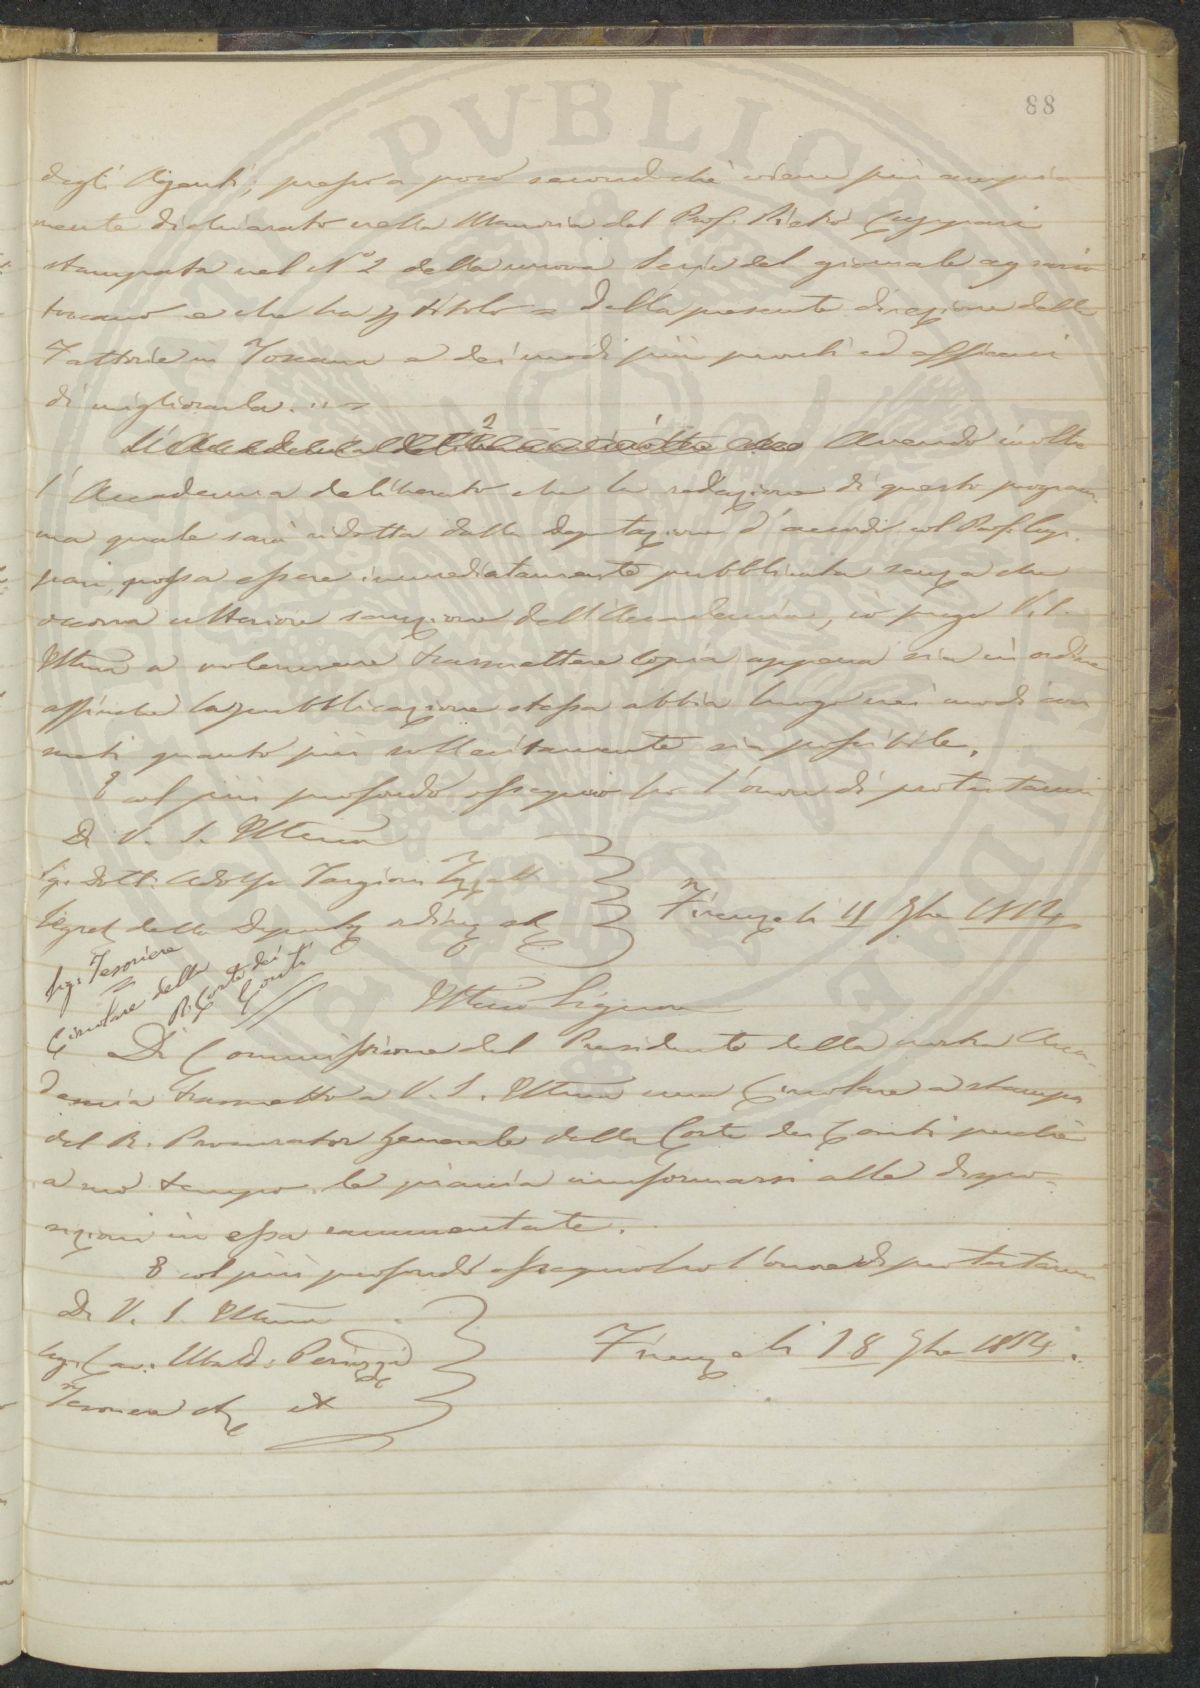 88
degli Agenti, presso a poco secondo che viene più ampia
mente dichiarato nella Memoria del Prof. Pietro Cuppari
stampata nel N.o 2 della nuova Serie del giornale agrario
toscano e che ha p titolo = Della presente direzione delle
Fattorie in Toscana e dei modi più pronti ed efficaci
di migliorarla. " =
Avendo inoltre
l'Accademia deliberato che la redazione di questo program-
ma quale sarà ridotta dalla Deputazione d'accordo col Prof. Cup-
pari, possa essere immediatamente pubblicata senza che
occorra ulteriore sanzione dell'Accademia, io prego V. S.
Illma a volermene trasmettere copia appena sia in ordine
affinchè la pubblicazione stessa abbia luogo nei modi con
sueti quanto più sollecitamente sia possibile.
E col più profondo ossequio ho l'onore di protestarmi
Di V. S. Illma
Sig. Dott. Adolfo Targioni Tozzetti
Segret della Deputaz ordin
Firenze li 11 9bre 1864
Sig. Tesoriere
Circolare della
R. Corte dei
Conti
Illmo Signore
Di Commissione del Presidente della nostra Acca-
demia trasmetto a V. S. Illma una Circolare a stampa
del R. Procurator Generale della Corte dei Conti perchè
a suo tempo le piaccia uniformarsi alle dispo-
sizioni in essa rammentate.
E col più profondo ossequio ho l'onore di protestarmi
Di V. S. Illma
Sig. Cav. Ubald. Peruzzi
Tesoriere
Firenze li 18 9bre 1864.